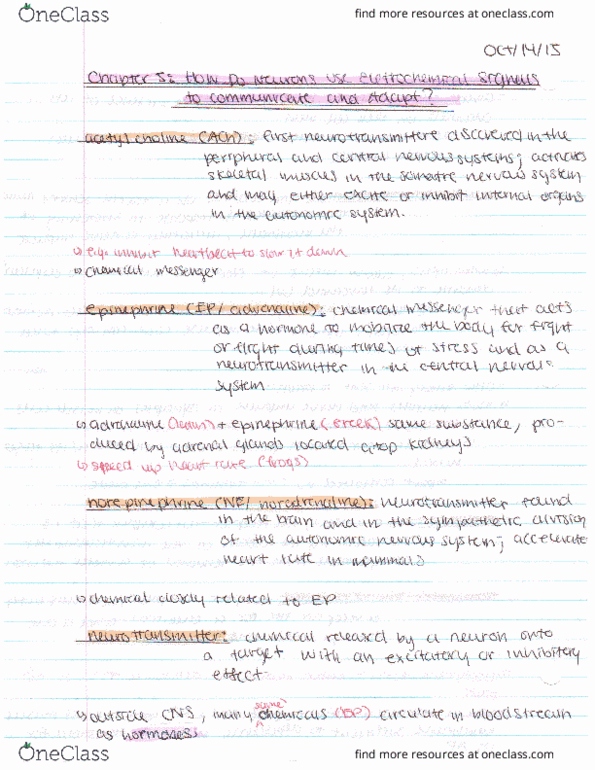 OneClass
find more resources at oneclass.com
Oct/14/15
Chapter 5: How Do Neurons Use Eletrochemical Signals
to communicate and Adapt?
acetyl choline (ACh): first neurotransmitters discovered in the
peripheral and central nervous systems; activates
skeletal muscles in the somatic nervous system
and may either excite or inhibit internal organs
in the autonomic system.
↳ e.g. inhibit heartbeat to slow it down
↳ chemical messenger
epinephrine (EP/ adrenaline): chemical messenger that acts
as a hormone to mobilize the body for fight
or flight during times of stress and as a
neurotransmitter in the central nervous
system
↳ adrenaline (latin) + epinephrine (greek) same substance, pro-
duced by adrenal glands located atop kidneys
↳ speed up heart rate (frogs)
norepinephrine (NE/ noradrenaline): neurotransmitter found
in the brain and in the sympathetic division
of the autonomic nervous system; accelerate
heart rate in mammals
↳ chemical closely related to EP
neurotransmitter: chemical released by a neuron onto
a target with an excitatory or inhibitory
effect
↳ outside CNS, many same chemicals (EP) circulate in bloodstream
as hormones
OneClass
find more resources at oneclass.com